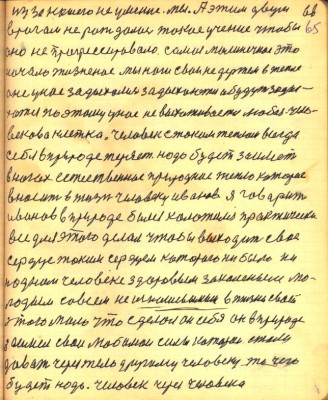 из за нашего не умение. мы. А этим двум 68
врачам не рождалось такое учение чтобы 65
оно не прогрессировало. самая мышечная это
начало жизненое мы ноги свои не держем в тепле
они у нас задыхались задыхаются и будут задых-
поэтому у нас не выживается любая чело-
века клетка. человек с таким телом всегда
себя в природе теряет. надо будет занимать
в ногах естественное природное тепло которое
вносит в жизнь человеку иванов. я говорит
иванов в природе был практически
все для этого делал чтобы выходит свое
сердце таким сердцем которого не было ни
на одном человеке здоровым закаленым мо-
лодым совсем не в жизни своей
этого мало что сделал он себя он в природе
своей силы которая стала
давать через тело другому человеку то чего
будет надо. человек через человека